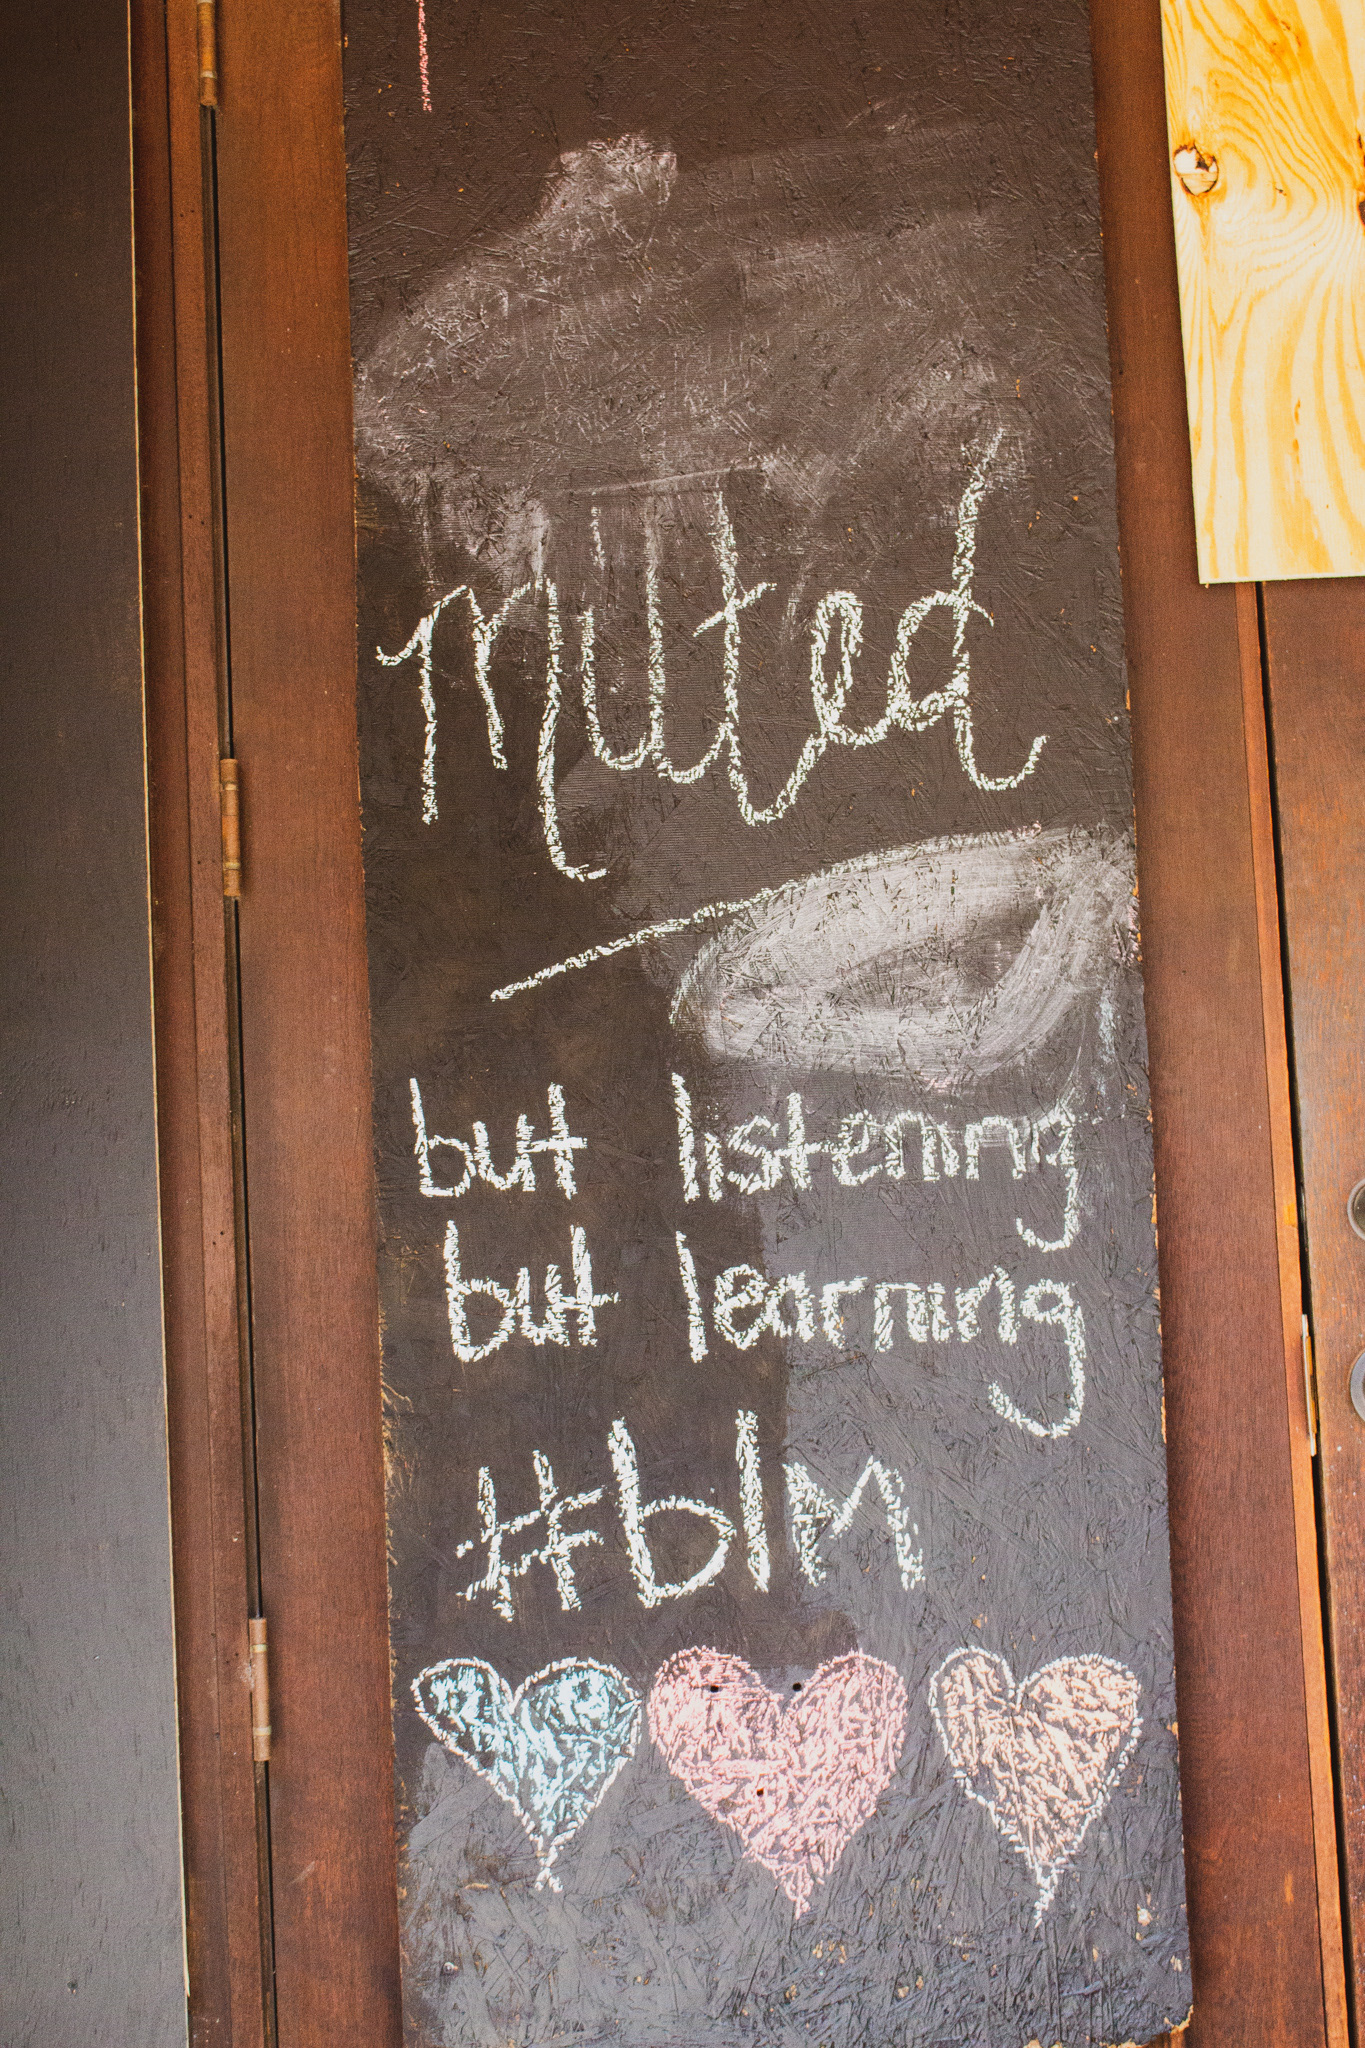 muted
but listening
but learning
#blm